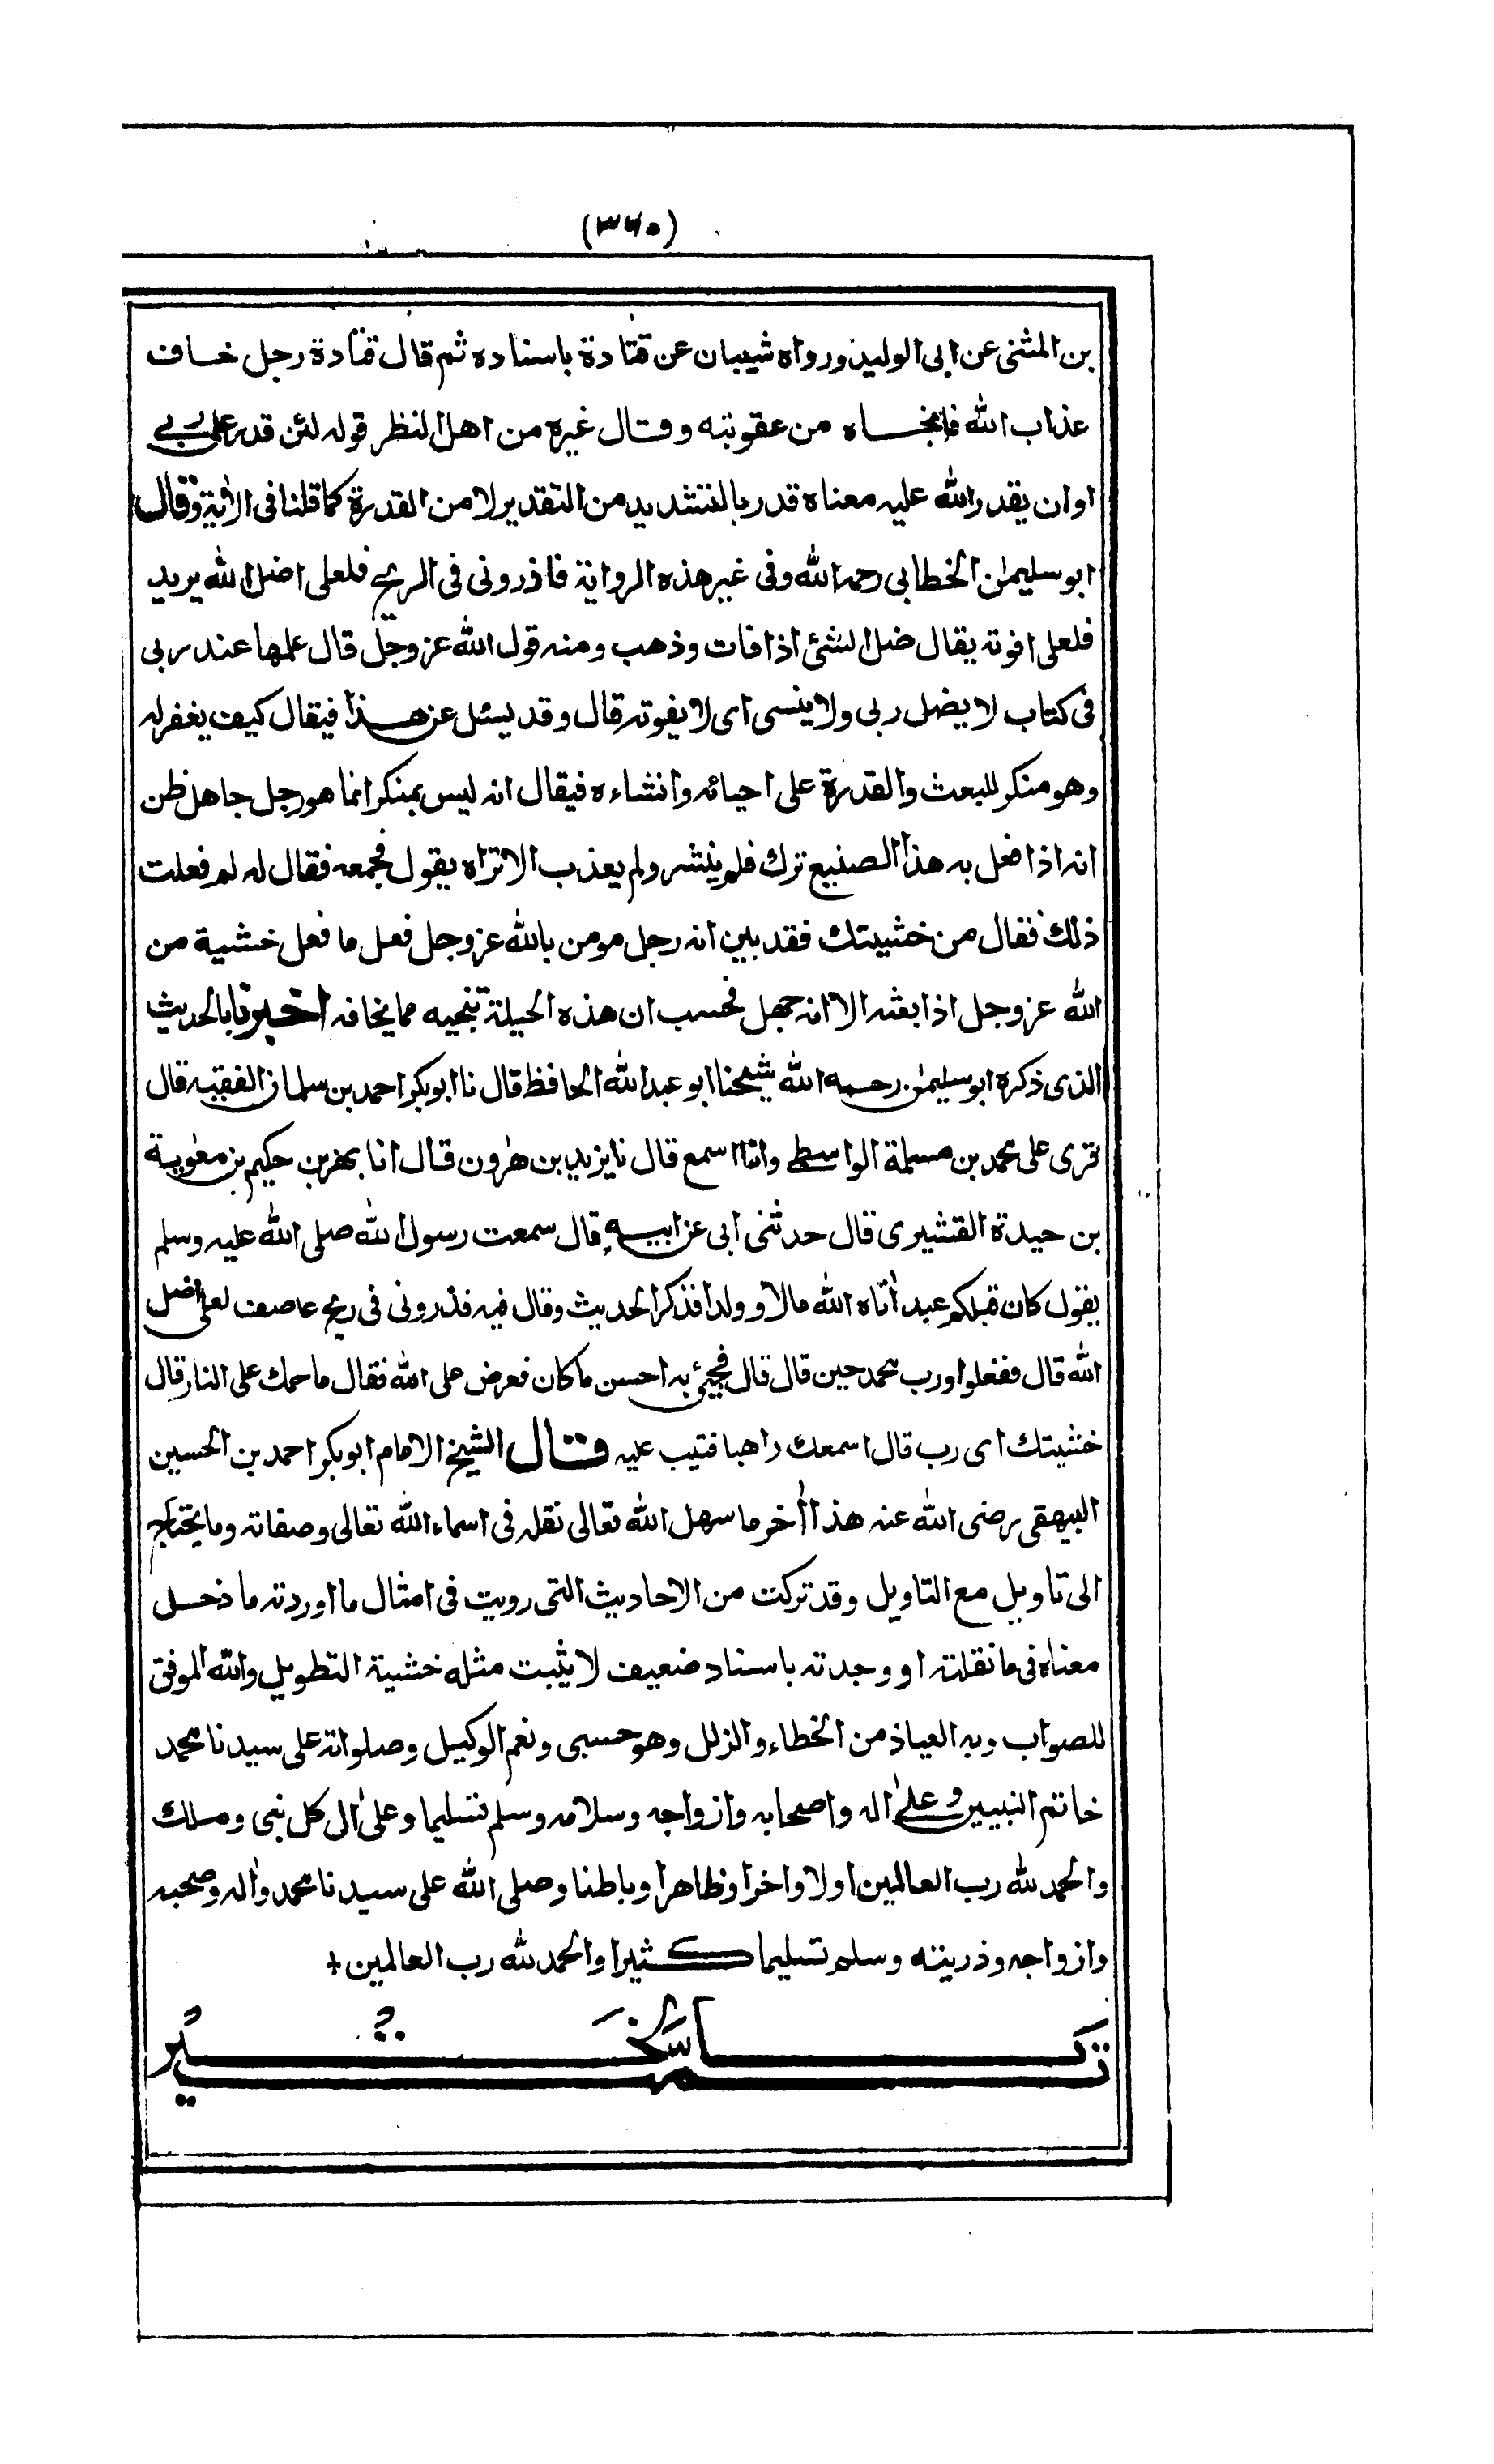 (٣٦٠)
بن المثنى عن ابى الوليد ورواه شيبان عن قتادة باسناده ثم قال قتادة رجل خاف
عذاب الله فانجاه من عقوبته وقال غيره من اهل النظر قوله لئن قدر على ربي
او ان يقدر الله عليه معناه قدر بالتشديد من التقدير لا من القدرة كما قلنا فى الاٰية وقال
ابو سليمٰن الخطابى رحمه الله وفى غير هذه الرواية فاذرونى فى الريح فلعلى اضل الله يريد
فلعلى افوته يقال ضل الشئ اذا فات وذهب ومنه قول الله عز وجل قال علمها عند ربى
فى كتاب لا يضل ربى ولا ينسى اى لا يفوته قال وقد يسئل عن هذا فيقال كيف يغفر له
وهو منكر للبعث والقدرة على احيائه وانشاءه فيقال انه ليس بمنكر انما هو رجل جاهل ظن
انه اذا فعل به هذا الصنيع ترك فلم ينشر ولم يعذب الا تراه يقول فجمعه فقال له لم فعلت
ذلك فقال من خشيتك فقد بين انه رجل مومن بالله عز وجل فعل ما فعل خشية من
الله عز وجل اذا بعثه الا انه جهل فحسب ان هذه الحيلة تنجيه مما يخافه اخبرنا بالحديث
الذى ذكره ابو سليمٰن رحمه الله شيخنا ابو عبد الله الحافظ قال نا ابو بكر احمد بن سلمان الفقيه قال
قرى على محمد بن مسلمة الواسطي وانا اسمع قال نا يزيد بن هٰرون قال انا بهز بن حكيم بن معٰوية
بن حيدة القشيرى قال حدثنى ابى عن ابيه قال سمعت رسول الله صلى الله عليه وسلم
يقول كان قبلكم عبد اٰتاه الله مالا وولدا فذكر الحديث وقال فيه فذرونى فى ريح عاصف لعلى اضل
الله قال ففعلوا ورب محمد حين قال قال فجيئ به احسن ما كان فعرض على الله فقال ما حملك على النار قال
خشيتك اى رب قال اسمعك راهبا فتيب عليه قال الشيخ الامام ابو بكر احمد بن الحسين
البيهقى رضى الله عنه هذا اٰخر ما سهل الله تعالى نقله فى اسماء الله تعالى وصفاته وما يحتاج
الى تاويل مع التاويل وقد تركت من الاحاديث التى رويت فى امثال ما اوردته ما دخل
معناه فى ما نقلته او وجدته باسناد ضعيف لا يثبت مثله خشية التطويل والله الموفق
للصواب وبه العياذ من الخطاء والزلل وهو حسبى ونعم الوكيل وصلواته على سيدنا محمد
خاتم النبيين وعلى اله واصحابه وازواجه وسلامه وسلم تسليما وعلى اٰل كل نبى وملك
والحمد لله رب العالمين اولا واخرا وظاهرا وباطنا وصلى الله على سيدنا محمد واٰله وصحبه
وازواجه وذريته وسلم تسليما كثيرا والحمد لله رب العالمين +